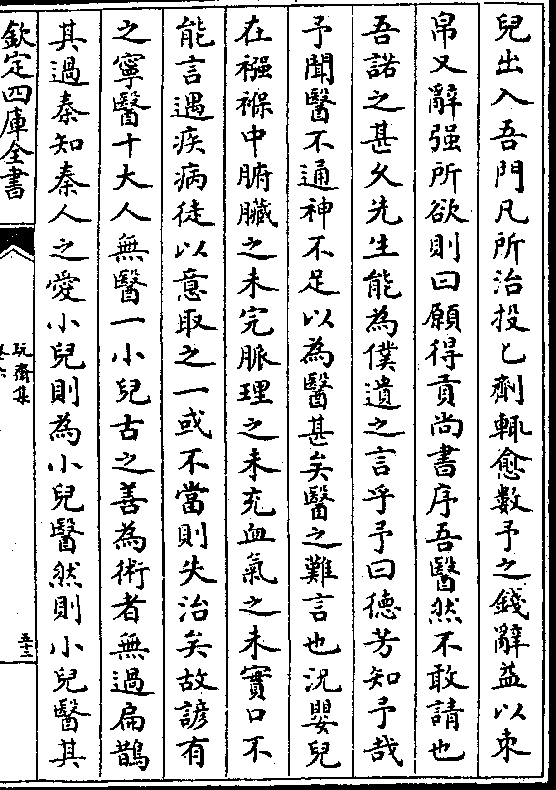 兒出入吾門凡所治投匕劑輒愈數予之錢辭益以束
帛又辭强所欲則曰願得貢尚書序吾醫然不敢請也
吾諾之甚久先生能為僕遺之言乎予曰德芳知予哉
予聞醫不通神不足以為醫甚矣醫之難言也況嬰兒
在襁褓中腑臟之未完脈理之未充血氣之未實口不
能言遇疾病徒以意取之一或不當則失治矣故諺有
之寧醫十大人無醫一小兒古之善為術者無過扁鵲
其過秦知秦人之愛小兒則為小兒醫然則小兒醫其
欽定四庫全書
玩齋集
卷六
五十二